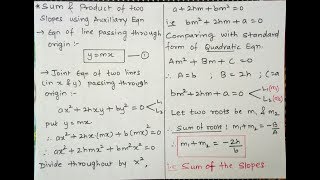 * Sum & Product of two
Slopes using Auxiliary Eqn
→ Eqn of line passing through
origin :-
y = mx — ①
→ Joint Eqn of two lines
(in x & y) passing through
origin :-
ax² + 2hxy + by² = 0 L₁ L₂
put y = mx
∴ ax² + 2hx(mx) + b(mx)² = 0
∴ ax² + 2hmx² + bm²x² = 0
Divide throughout by x²,
a + 2hm + bm² = 0
i.e bm² + 2hm + a = 0
Comparing with standard
form of Quadratic Eqn.
Am² + Bm + C = 0
∴ A = b B = 2h C = a
bm² + 2hm + a = 0 L₁(m₁) L₂(m₂)
Let two roots be m₁ & m₂
∴ Sum of roots: m₁ + m₂ = -B/A
∴ m₁ + m₂ = -2h/b
i.e Sum of the Slopes